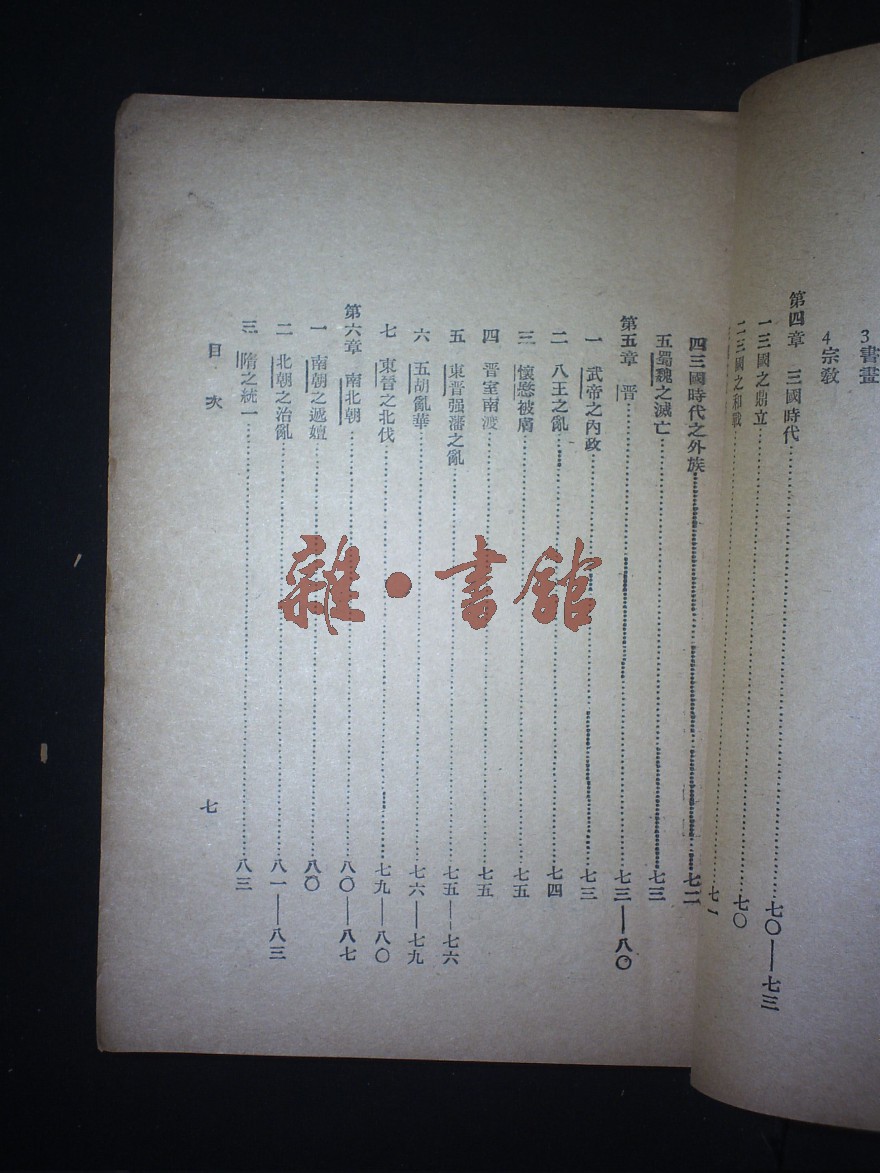 3書畫
4宗教
第四章 三國時代……七〇——七三
一三國之鼎立……七〇
二三國之和戰……七一
四三國時代之外族……七二
五蜀魏之滅亡……七三
第五章 晉……七三——八〇
一 武帝之內政……七三
二 八王之亂……七四
三 懷愍被虜……七五
四 晉室南渡……七五
五 東晉强藩之亂……七五——七六
六 五胡亂華……七六——七九
七 東晉之北伐……七九——八〇
第六章 南北朝……八〇——八七
一 南朝之遞嬗……八〇
二 北朝之治亂……八一——八三
三 隋之統一……八三
目次
七
雜·書館